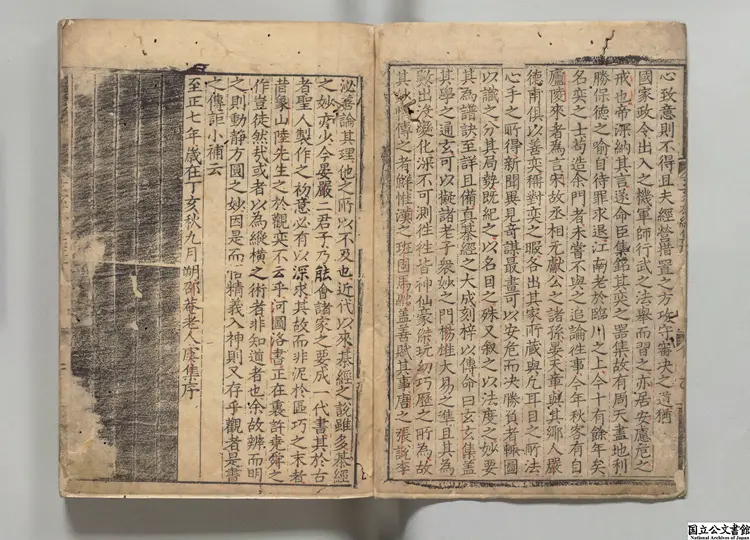 心致意則不得且夫經營措置之方攻守審决之道猶
國家政令出入之機軍師行武之法舉而習之亦居安慮危之
戒也帝深納其言遂命臣集銘其奕之器集故有周天畫地制
勝保德之喻自待罪求退江南老於臨川之上今十有餘年矣
名奕之士葛造余門者未嘗不與之追論徃事今年秋客有自
廬陵來者為言宋故丞相元獻公之諸孫晏天章與其鄉人嚴
德甫俱以善奕稱對奕之暇各出其家所藏與凡耳目之所法
心手之所得新聞異見奇謀最畫可以安危而决勝負者輙圖
以識之分其局勢既紀之以名目之殊又叙之以法度之妙要
其為譜訣至詳且備真碁經之大成刻梓以傳命曰玄玄集蓋
其學之通玄可以擬諸老子衆妙之門楊雄大易之準且其為
數出沒變化深不可測徃徃皆神仙豪傑玩幼巧歷之所為故
其妙傳之者鮮惟漢之班固馬融蓋善賦其事唐之張說李
泌善論其理他之所以不及也近代以來碁經之說雖多碁經
之妙亦少今晏嚴二君子乃能會諸家之要成一代書其於古
者聖人製作之初意必有以深求其故而非泥於區巧之末者
昔象山陸先生之於觀奕不云乎河圖洛書正在裏許堯舜之
作豈徒然哉或者以為縱橫之術者非知道者也余故辨而明
之則動靜方圓之妙因是而悟精義入神則又存乎觀者是書
之傳詎小補云
至正七年歳在丁亥秋九月朔邵菴老人虞集序
国立公文書館
National Archives of Japan